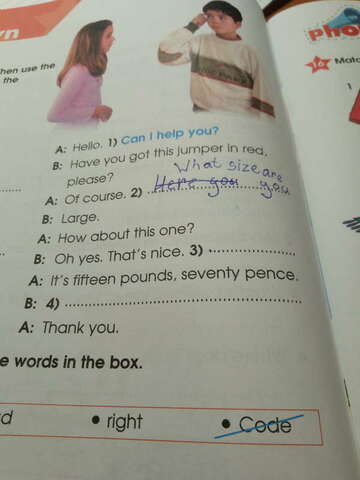 pho
hen use the
the
16 Matc
1
A: Hello. 1) Can I help you?
B: Have you got this jumper in red,
please?
What size are
A: Of course. 2) Here you you
B: Large.
A: How about this one?
B: Oh yes. That's nice. 3) ..............
A: It's fifteen pounds, seventy pence.
B: 4) ..............
A: Thank you.
e words in the box.
d • right • Code